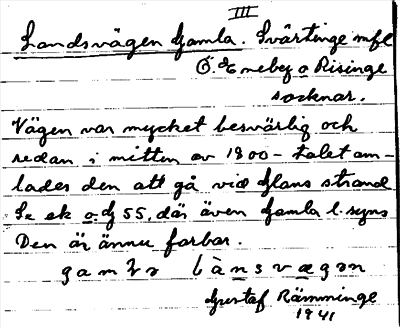 III
Landsvägen Gamla. Svärtinge mfl
Ö. Eneby o Risinge
socknar.
Vägen var mycket besvärlig och
redan i mitten av 1800-talet om-
lades den att gå vid Glans strand
Se ek o. bj 55, där även Gamla l. syns
Den är ännu farbar.
gamla lànsvægən
Gustaf Rämminge
1941